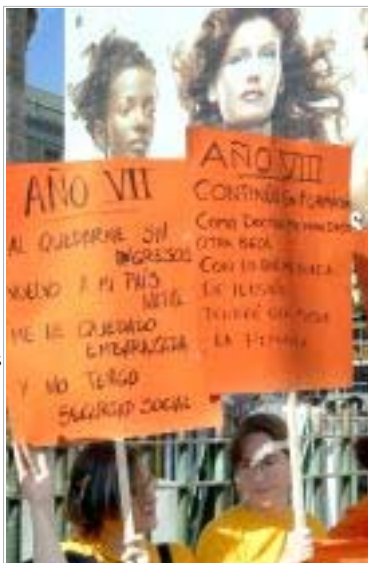 AÑO VII
AL QUEDARME SIN
INGRESOS
VUELVO A MI PAÍS
ME HE QUEDADO
EMBARAZADA
Y NO TENGO
SEGURIDAD SOCIAL
AÑO VIII
CONTINÚO EN FORMACIÓN
COMO DOCTOR ME HAN DADO
OTRA BECA
CON LO QUE
DE ILUSIÓN
TENDRÉ QUE
LA